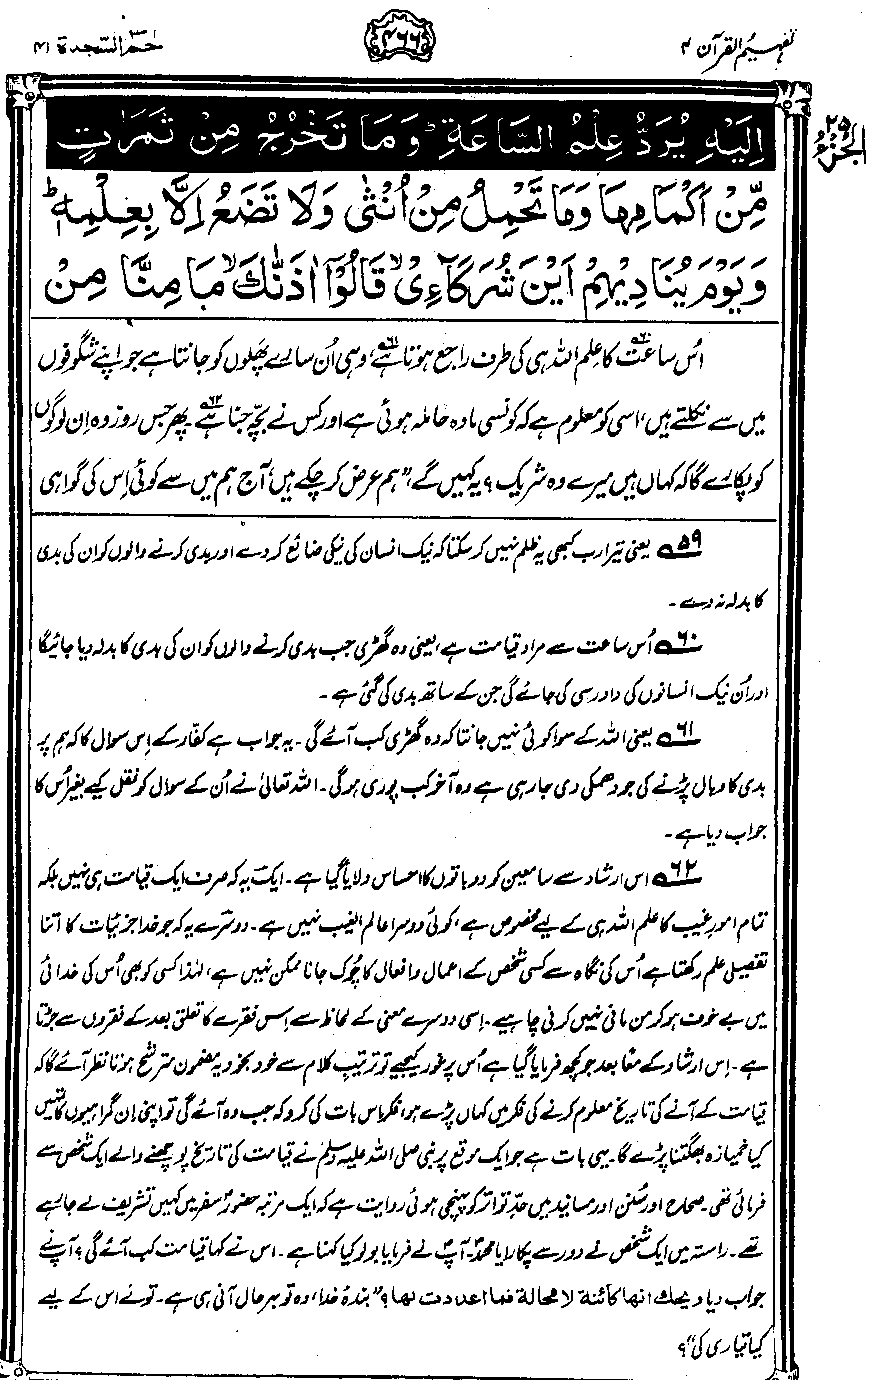 تفہیم القرآن ۴
۴۶۶
حٰمٓ السّجدۃ ۴۱
الجزء ۲۵
اِلَيْهِ يُرَدُّ عِلْمُ السَّاعَةِ ؕ وَمَا تَخْرُجُ مِنْ ثَمَرٰتٍ
مِّنْ اَكْمَامِهَا وَمَا تَحْمِلُ مِنْ اُنْثٰى وَلَا تَضَعُ اِلَّا بِعِلْمِهٖ ؕ
وَيَوْمَ يُنَادِيْهِمْ اَيْنَ شُرَكَآءِىْ ۙ قَالُوْٓا اٰذَنّٰكَ ۙ مَا مِنَّا مِنْ
اُس ساعت۶۰ کا علم اللہ ہی کی طرف راجع ہوتا ہے۶۱، وہی اُن سارے پھلوں کو جانتا ہے جو اپنے شگوفوں
میں سے نکلتے ہیں، اسی کو معلوم ہے کہ کونسی مادہ حاملہ ہوئی ہے اور کس نے بچّہ جنا ہے۶۲۔ پھر جس روز وہ اِن لوگوں
کو پکارے گا کہ کہاں ہیں میرے وہ شریک؟ یہ کہیں گے، ”ہم عرض کر چکے ہیں، آج ہم میں سے کوئی اِس کی گواہی
۵۹ یعنی تیرا رب کبھی یہ ظلم نہیں کر سکتا کہ نیک انسان کی نیکی ضائع کر دے اور بدی کرنے والوں کو ان کی بدی
کا بدلہ نہ دے۔
۶۰ اُس ساعت سے مراد قیامت ہے، یعنی وہ گھڑی جب بدی کرنے والوں کو ان کی بدی کا بدلہ دیا جائیگا
اور اُن نیک انسانوں کی داد رسی کی جائے گی جن کے ساتھ بدی کی گئی ہے۔
۶۱ یعنی اللہ کے سوا کوئی نہیں جانتا کہ وہ گھڑی کب آئے گی۔ یہ جواب ہے کفّار کے اِس سوال کا کہ ہم پر
بدی کا وبال پڑنے کی جو دھمکی دی جا رہی ہے وہ آخر کب پوری ہوگی۔ اللہ تعالیٰ نے اُن کے سوال کو نقل کیے بغیر اُس کا
جواب دیا ہے۔
۶۲ اس ارشاد سے سامعین کو دو باتوں کا احساس دلایا گیا ہے۔ ایک یہ کہ صرف ایک قیامت ہی نہیں بلکہ
تمام امورِ غیب کا علم اللہ ہی کے لیے مخصوص ہے، کوئی دوسرا عالم الغیب نہیں ہے۔ دوسرے یہ کہ جو خدا جزئیات کا اتنا
تفصیلی علم رکھتا ہے اُس کی نگاہ سے کسی شخص کے اعمال و افعال کا چُوک جانا ممکن نہیں ہے، لہٰذا کسی کو بھی اُس کی خدائی
میں بے خوف ہو کر من مانی نہیں کرنی چاہیے۔ اِسی دوسرے معنی کے لحاظ سے اِس فقرے کا تعلق بعد کے فقروں سے جڑتا
ہے۔ اِس ارشاد کے معًا بعد جو کچھ فرمایا گیا ہے اُس پر غور کیجیے تو ترتیبِ کلام سے خود بخود یہ مضمون مترشح ہوتا نظر آئے گا کہ
قیامت کے آنے کی تاریخ معلوم کرنے کی فکر میں کہاں پڑے ہو، فکر اِس بات کی کرو کہ جب وہ آئے گی تو اپنی اِن گمراہیوں کا تمہیں
کیا خمیازہ بھگتنا پڑے گا۔ یہی بات ہے جو ایک موقع پر نبی صلی اللہ علیہ وسلم نے قیامت کی تاریخ پوچھنے والے ایک شخص سے
فرمائی تھی۔ صحاح اور سُنن اور مسانید میں حدِّ تواتر کو پہنچی ہوئی روایت ہے کہ ایک مرتبہ حضورؐ سفر میں کہیں تشریف لے جا رہے
تھے۔ راستہ میں ایک شخص نے دور سے پکارا یا محمدؐ۔ آپؐ نے فرمایا بولو کیا کہنا ہے۔ اس نے کہا قیامت کب آئے گی؟ آپؐ نے
جواب دیا ویحك انها كائنة لا محالة فما اعددت لها؟ ”بندۂ خدا، وہ تو بہر حال آنی ہی ہے۔ تو نے اس کے لیے
کیا تیاری کی“؟